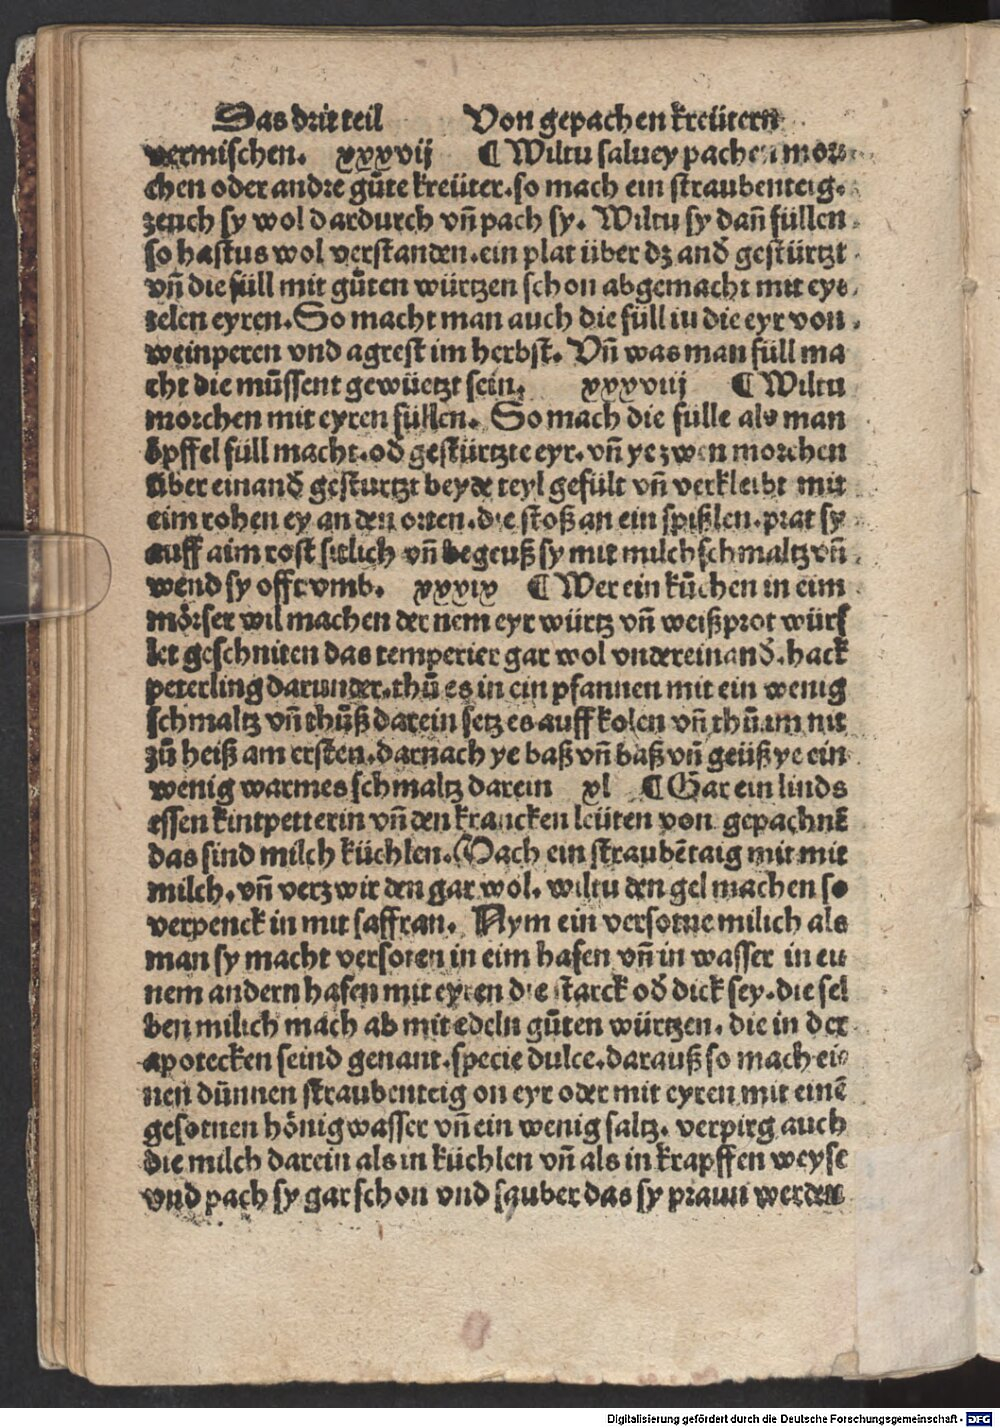 Das drit teil Von gepachen kreütern
vermischen. xxxvij ¶ Wiltu saluey pachen mor
chen oder andre gůte kreüter. so mach ein straubenteig.
zeuch sy wol dardurch vñ pach sy. Wiltu sy dañ füllen
so hastus wol verstanden. ein plat über dz and̄ gestürtzt
vñ die füll mit gůten würtzen schon abgemacht mit eye
telen eyren. So macht man auch die füll in die eyr von
weinperen vnd agrest im herbst. Vñ was man füll ma
cht die můssent gewüetzt sein. xxxviij ¶ Wiltu
morchen mit eyren füllen. So mach die fülle als man
öpffel füll macht. od̄ gestürtzte eyr. vñ ye zwen morchen
über einand̄ gesturtzt beyde teyl gefült vñ verkleibt mit
eim rohen ey an den orten. die stoß an ein spißlen. prat sy
auff aim rost sitlich vñ begeuß sy mit milchschmaltz vñ
wend sy offt vmb. xxxix ¶ Wer ein kůchen in eim
mörser wil machen der nem eyr würtz vñ weißprot würf
let geschniten das temperier gar wol vndereinand̄. hack
peterling darunder. thů es in ein pfannen mit ein wenig
schmaltz vñ thůß darein setz es auff kolen vñ thů im nit
zů heiß am ersten. darnach ye baß vñ baß vñ geüß ye ein
wenig warmes schmaltz darein xl ¶ Gar ein linds
essen kintpetterin vñ den krancken leüten von gepachnē
das sind milch küchlen. Mach ein straubētaig mit mit
milch. vñ verzwir den gar wol. wiltu den gel machen so
verpenck in mit saffran. Nym ein versotne milich als
man sy macht versoten in eim hafen vñ in wasser in eu
nem andern hafen mit eyren die starck od̄ dick sey. die sel
ben milich mach ab mit edeln gůten würtzen. die in der
apotecken seind genant. specie dulce. darauß so mach ei
nen dünnen straubenteig on eyr oder mit eyren mit einē
gesotnen hönigwasser vñ ein wenig saltz. verpirg auch
die milch darein als in küchlen vñ als in krapffen weyse
vnd pach sy gar schon vnd sauber das sy praun werden
Digitalisierung gefördert durch die Deutsche Forschungsgemeinschaft - DFG